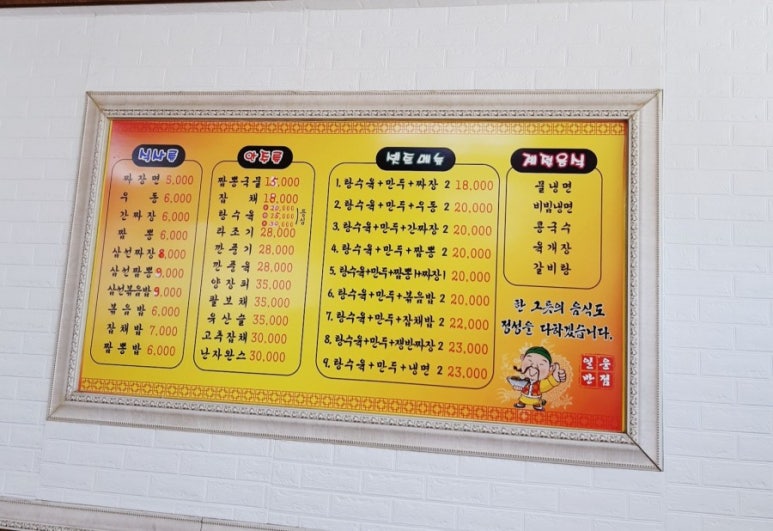 식사류
짜장면 5,000
우동 6,000
간짜장 6,000
짬뽕 6,000
삼선짜장 8,000
삼선짬뽕 9,000
삼선볶음밥 9,000
볶음밥 6,000
잡채밥 7,000
짬뽕밥 6,000
안주류
짬뽕국물 15,000
잡채 18,000
탕수육
소 20,000
중 25,000
대 30,000
라조기 28,000
깐풍기 28,000
깐풍육 28,000
양장피 35,000
팔보채 35,000
유산슬 35,000
고추잡채 30,000
난자완스 30,000
세트메뉴
1. 탕수육+만두+짜장 2 18,000
2. 탕수육+만두+우동 2 20,000
3. 탕수육+만두+간짜장 2 20,000
4. 탕수육+만두+짬뽕 2 20,000
5. 탕수육+만두+짬뽕1+짜장1 20,000
6. 탕수육+만두+볶음밥 2 20,000
7. 탕수육+만두+잡채밥 2 22,000
8. 탕수육+만두+쟁반짜장 2 23,000
9. 탕수육+만두+냉면 2 23,000
계절음식
물냉면
비빔냉면
콩국수
육개장
갈비탕
한 그릇의 음식도
정성을 다하겠습니다.
일웅
반점